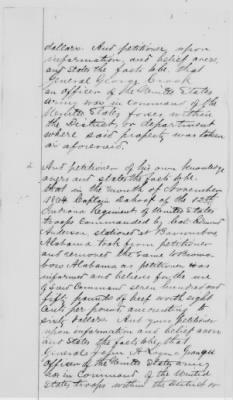 dollars. And petitioner, upon
information, and belief avers,
and states the facts to be, that
General George Crook
an officer of the United States
army was in command of the
United States forces within
the District or department
where said property was taken
as aforesaid.
2 And petitioner of his own knowledge
avers and states the facts to be
that in the month of November
1864 Captain of the 13th
Indiana Regiment of United States
troops Commanded by Col.
stationed at
Alabama took from petitioner
and removed the same to
Alabama as petitioner was
informed and believes for the use
of said Command seven hundred and
fifty pounds of beef worth eight
cents per pound amounting to
sixty dollars. And your petitioner
upon information and belief avers
and states the facts to be, that
General
officer of the United States army
was in command of the United
States troops within the District or